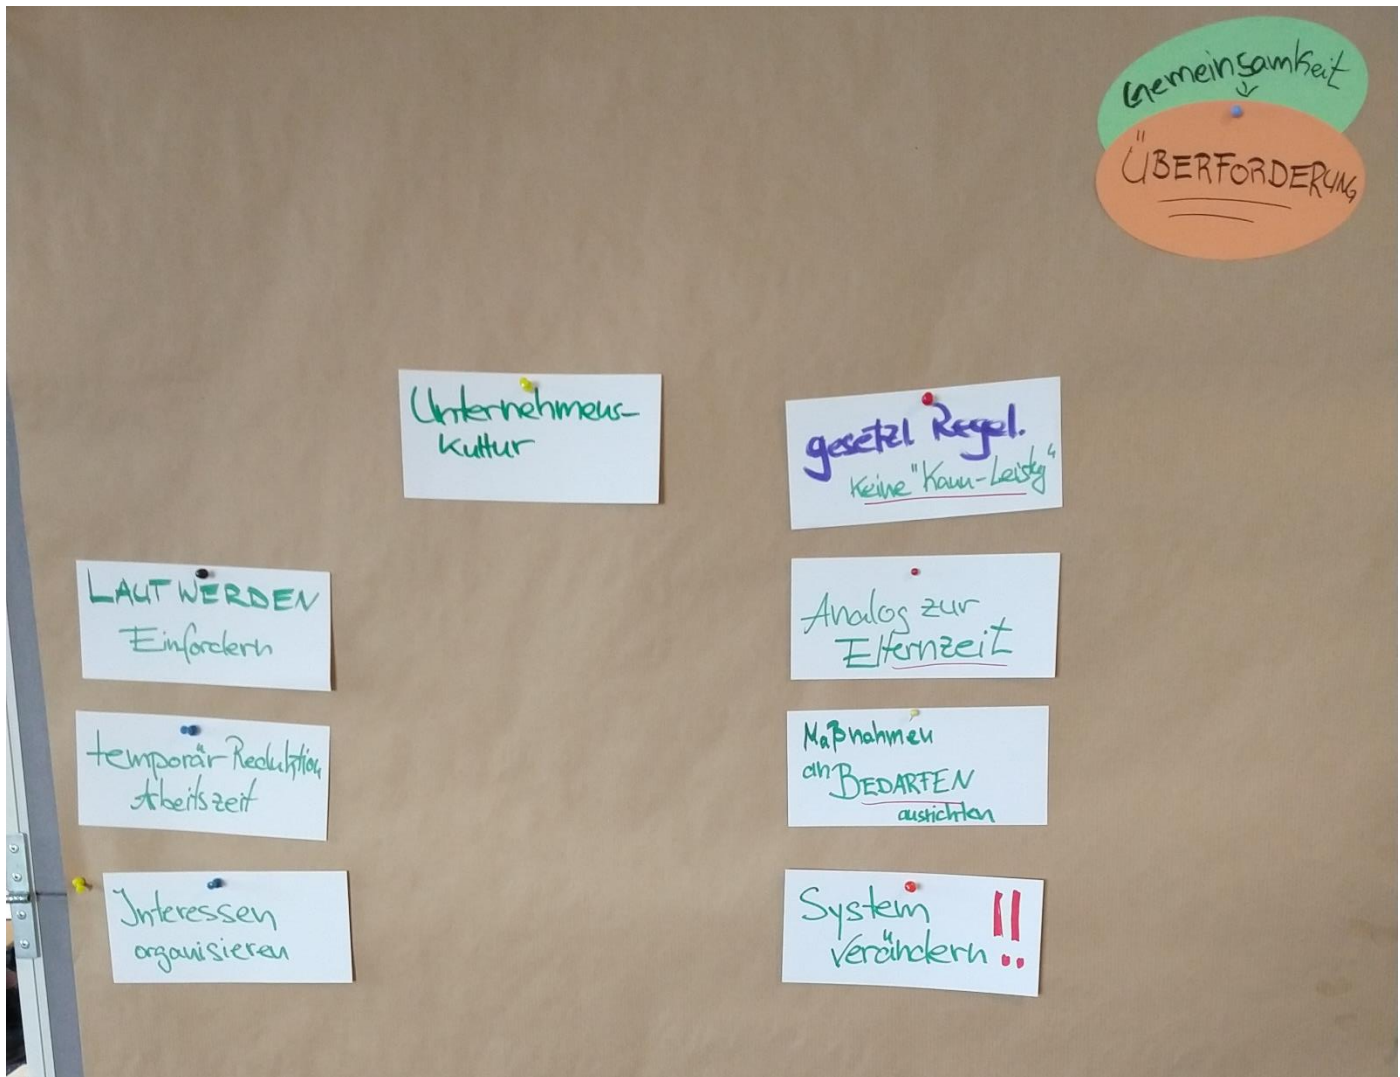 Gemeinsamkeit
ÜBERFORDERUNG
Unternehmens-
Kultur
gesetzl Regel.
Keine "Kann-Leistg"
LAUT WERDEN
Einfordern
Analog zur
Elternzeit
temporär Reduktion
Arbeitszeit
Maßnahmen
an BEDARFEN
ausrichten
Interessen
organisieren
System !!
verändern